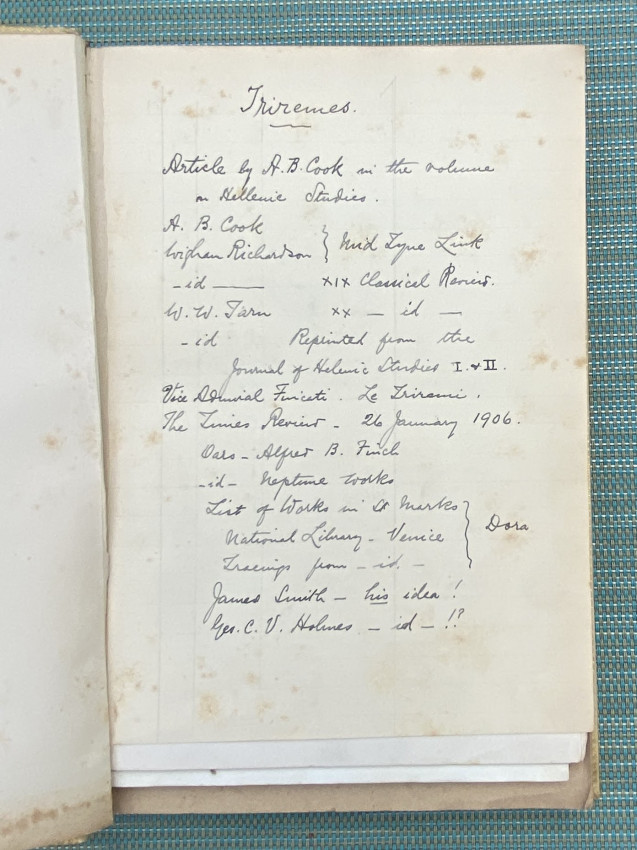 Triremes.
Article by A.B. Cook in the volume
on Hellenic Studies.
A. B. Cook
Wigham Richardson } Mid Tyne Link
- id — XIX Classical Review.
W. W. Tarn XX — id —
- id Reprinted from the
Journal of Helenic Studies I. & II.
Vice Admiral Fincati. Le Triremi.
The Times Review - 26 January 1906.
Oars - Alfred B. Finch
-id- Neptune Works
List of Works in St Marks
National Library - Venice } Dora
Tracings from - id. -
James Smith - his idea!
Geo. C. V. Holmes - id - !?